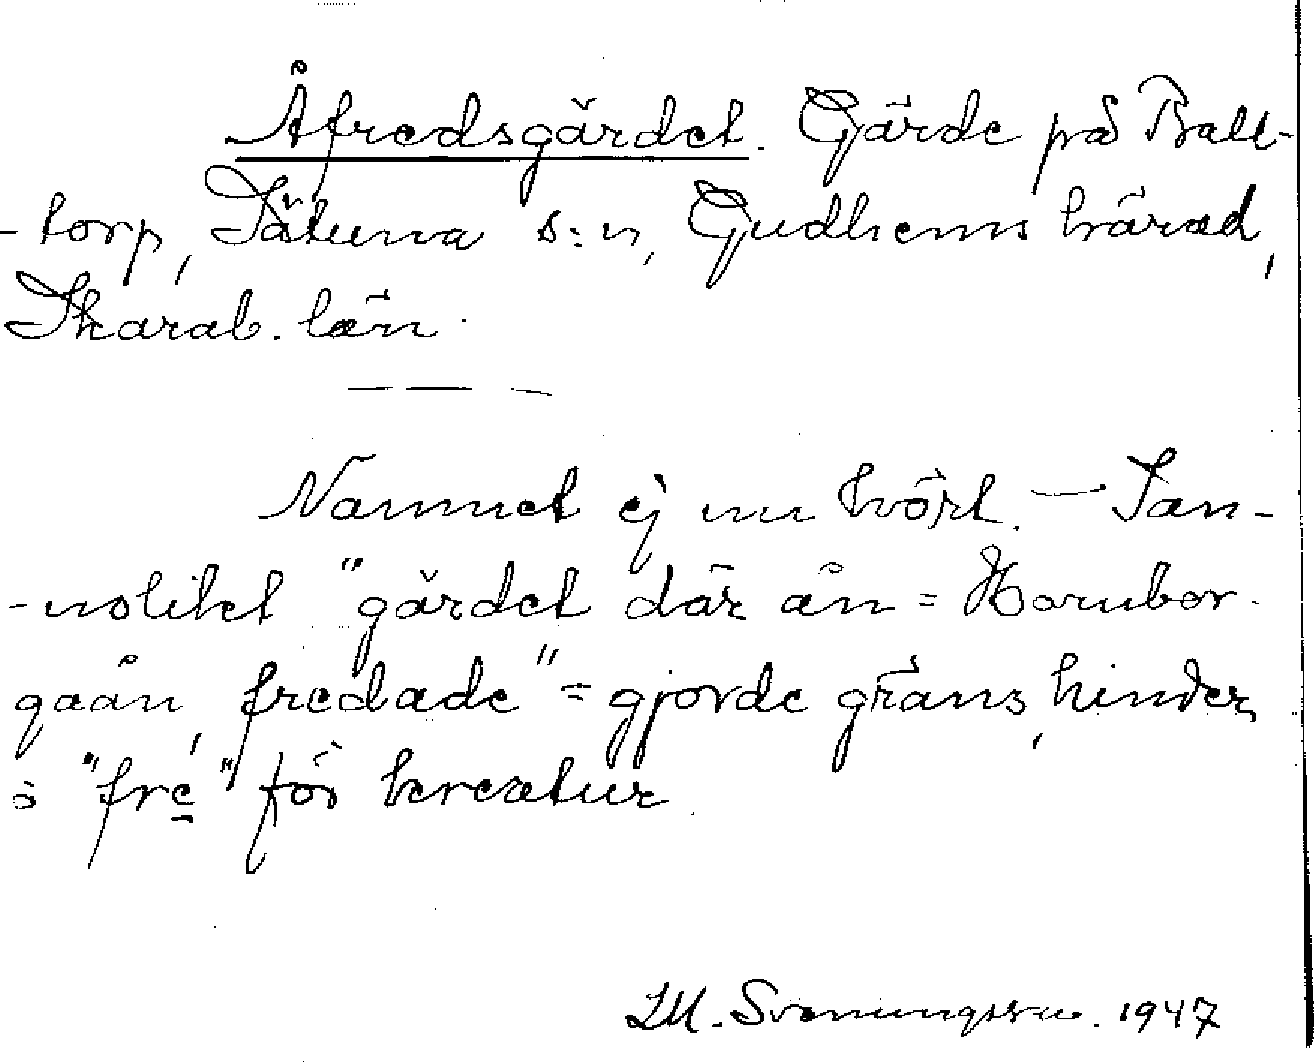 Åfredsgärdet. Gärde på Ball-
-torp, Sätuna s:n, Gudhems härad,
Skarab. län.
Namnet ej nu hört. — San-
-nolikt "gärdet där ån = Hornbor-
gaån, fredade" = gjorde gräns, hinder,
o "fre" för kreatur.
LM. Svenungsson. 1947